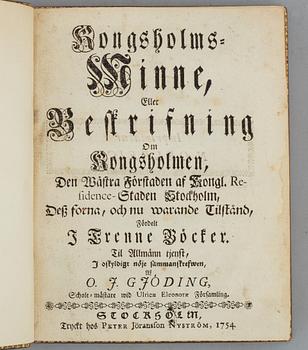 Kongsholms-
Minne,
Eller
Beskrifning
Om
Kongsholmen,
Den Wästra Förstaden af Kongl. Re-
sidence-Staden Stockholm,
Deß forna, och nu warande Tilstånd,
Fördelt
I Trenne Böcker.
Til Allmänn tjenst,
I oskyldigt nöje sammanskrefwen,
Af
O. J. GJÖDING,
Schole-mästare wid Ulrica Eleonoræ Församling.
STOCKHOLM,
Tryckt hos PETER Jöransson NYSTRÖM, 1754.